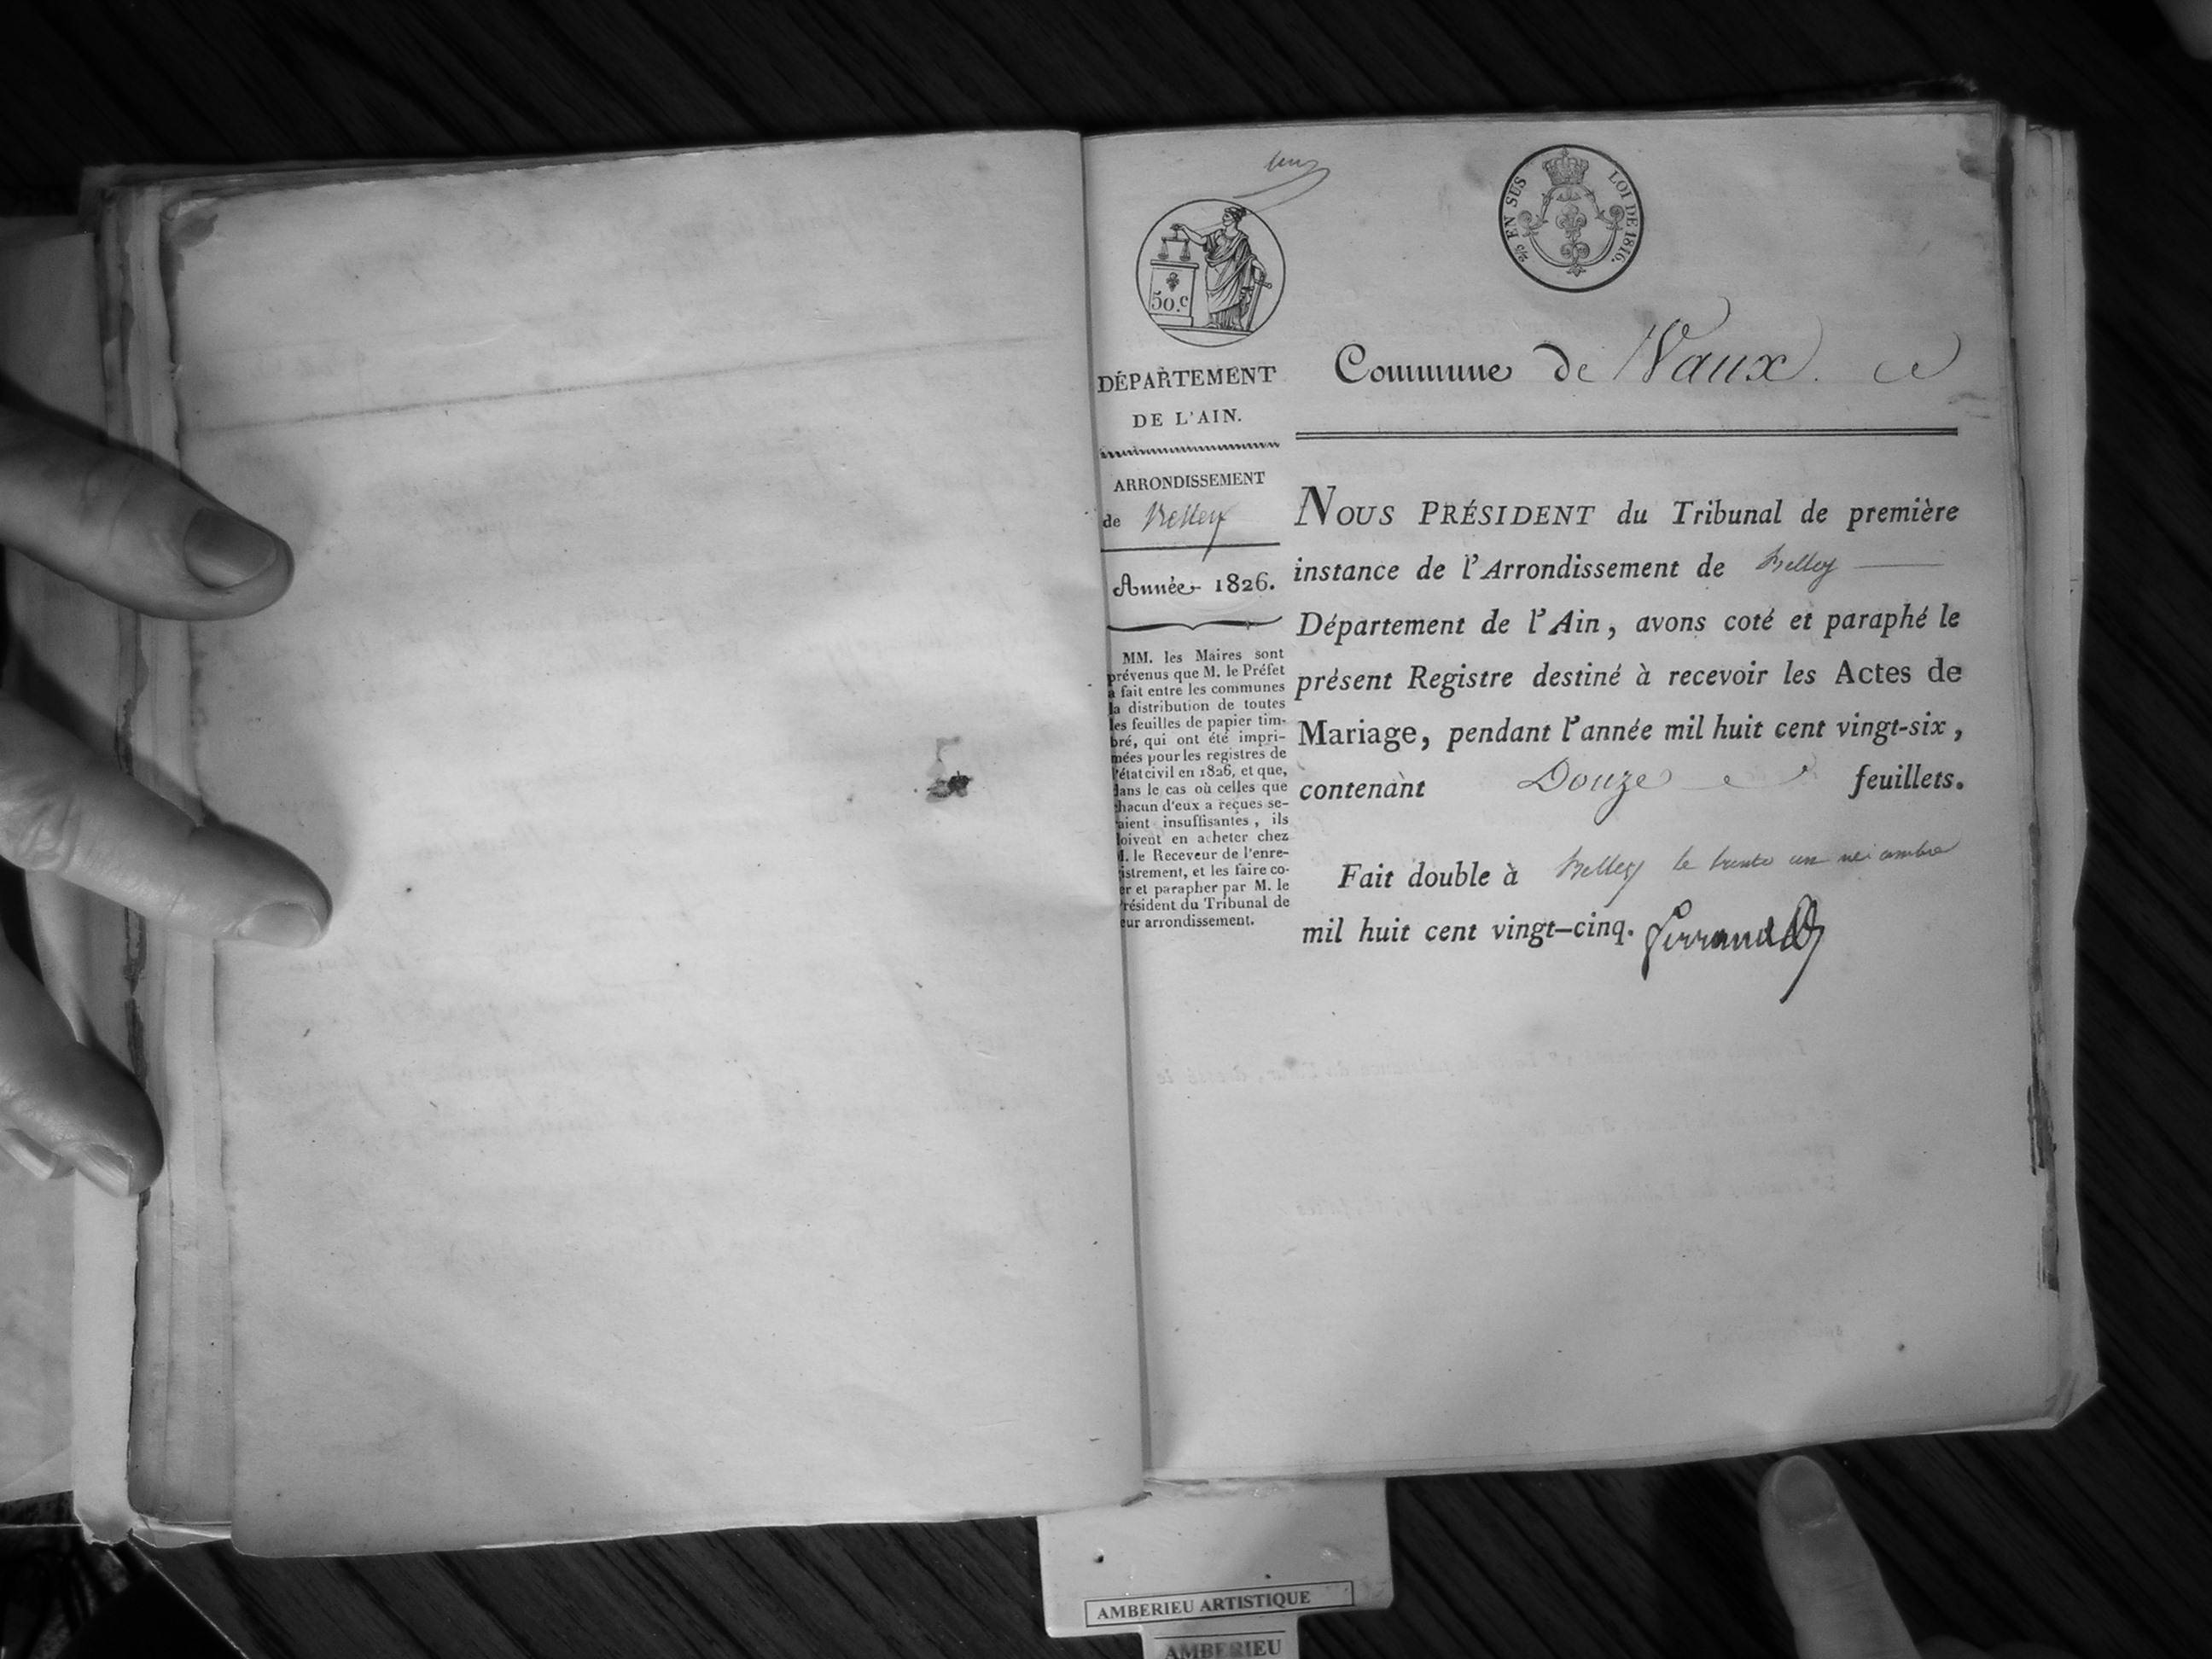 un
50.c
2/5 EN SUS LOI DE 1816.
DÉPARTEMENT
DE L'AIN.
ARRONDISSEMENT
de Belley
Année 1826.
MM. les Maires sont
prévenus que M. le Préfet
a fait entre les communes
la distribution de toutes
les feuilles de papier tim-
bré, qui ont été impri-
mées pour les registres de
l'état civil en 1826, et que,
dans le cas où celles que
chacun d'eux a reçues se-
raient insuffisantes, ils
doivent en acheter chez
M. le Receveur de l'enre-
gistrement, et les faire co-
ter et parapher par M. le
Président du Tribunal de
leur arrondissement.
Commune de Vaux.
NOUS PRÉSIDENT du Tribunal de première
instance de l'Arrondissement de Belley
Département de l'Ain, avons coté et paraphé le
présent Registre destiné à recevoir les Actes de
Mariage, pendant l'année mil huit cent vingt-six,
contenant Douze feuillets.
Fait double à Belley le trente un
mil huit cent vingt-cinq.
AMBERIEU ARTISTIQUE
AMBERIEU